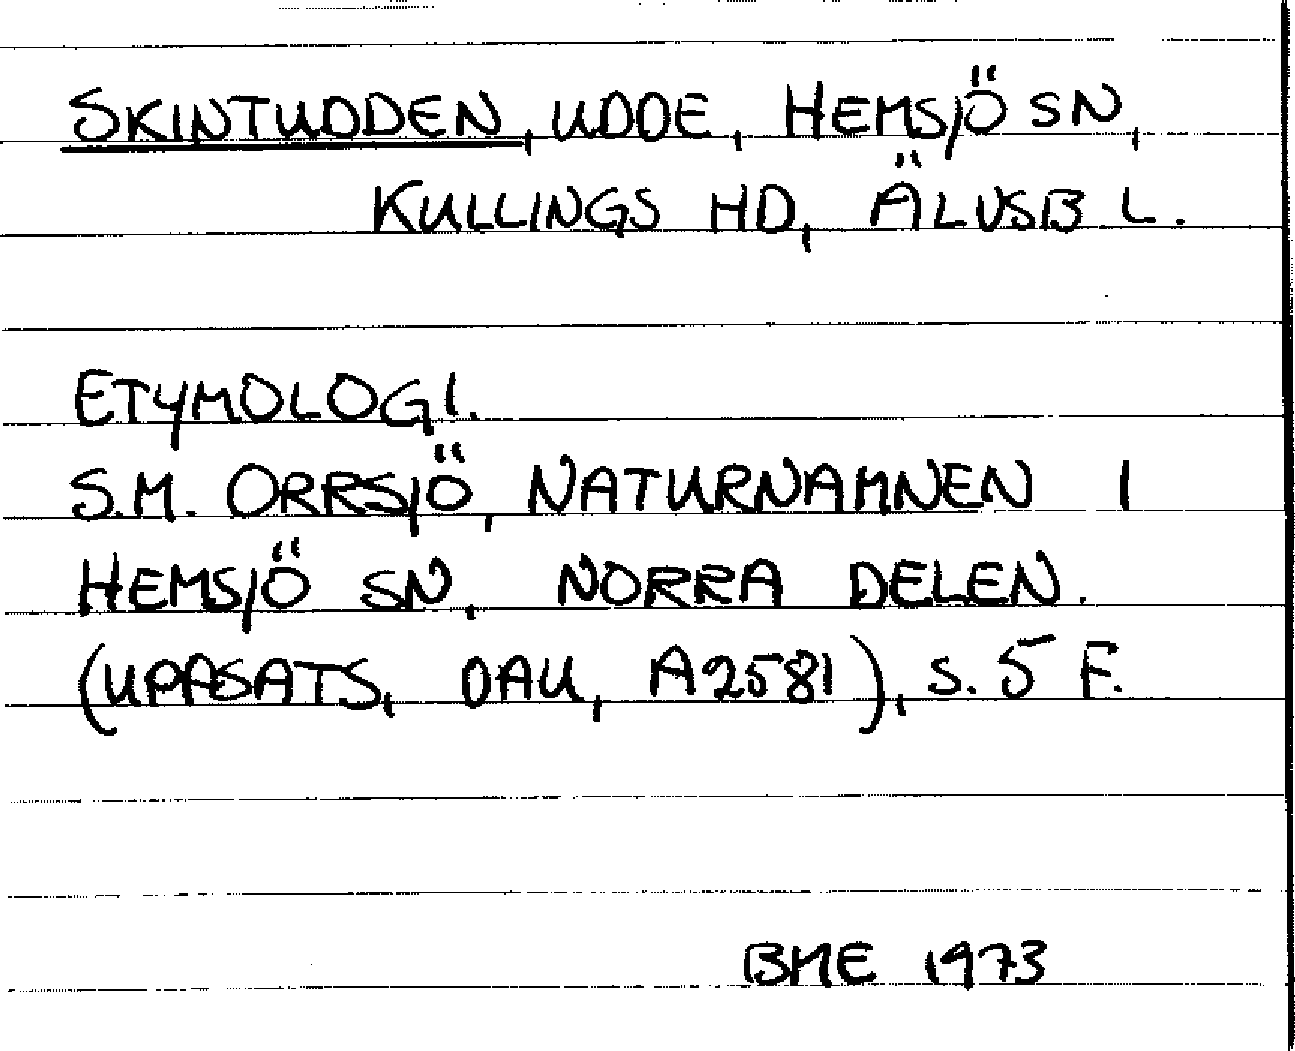 SKINTUDDEN, UDDE, HEMSJÖ SN,
KULLINGS HD, ÄLVSB L.
ETYMOLOGI.
S.M. ORRSJÖ, NATURNAMNEN I
HEMSJÖ SN, NORRA DELEN.
(UPPSATS, OAU, A2581), S. 5 F.
BME 1973